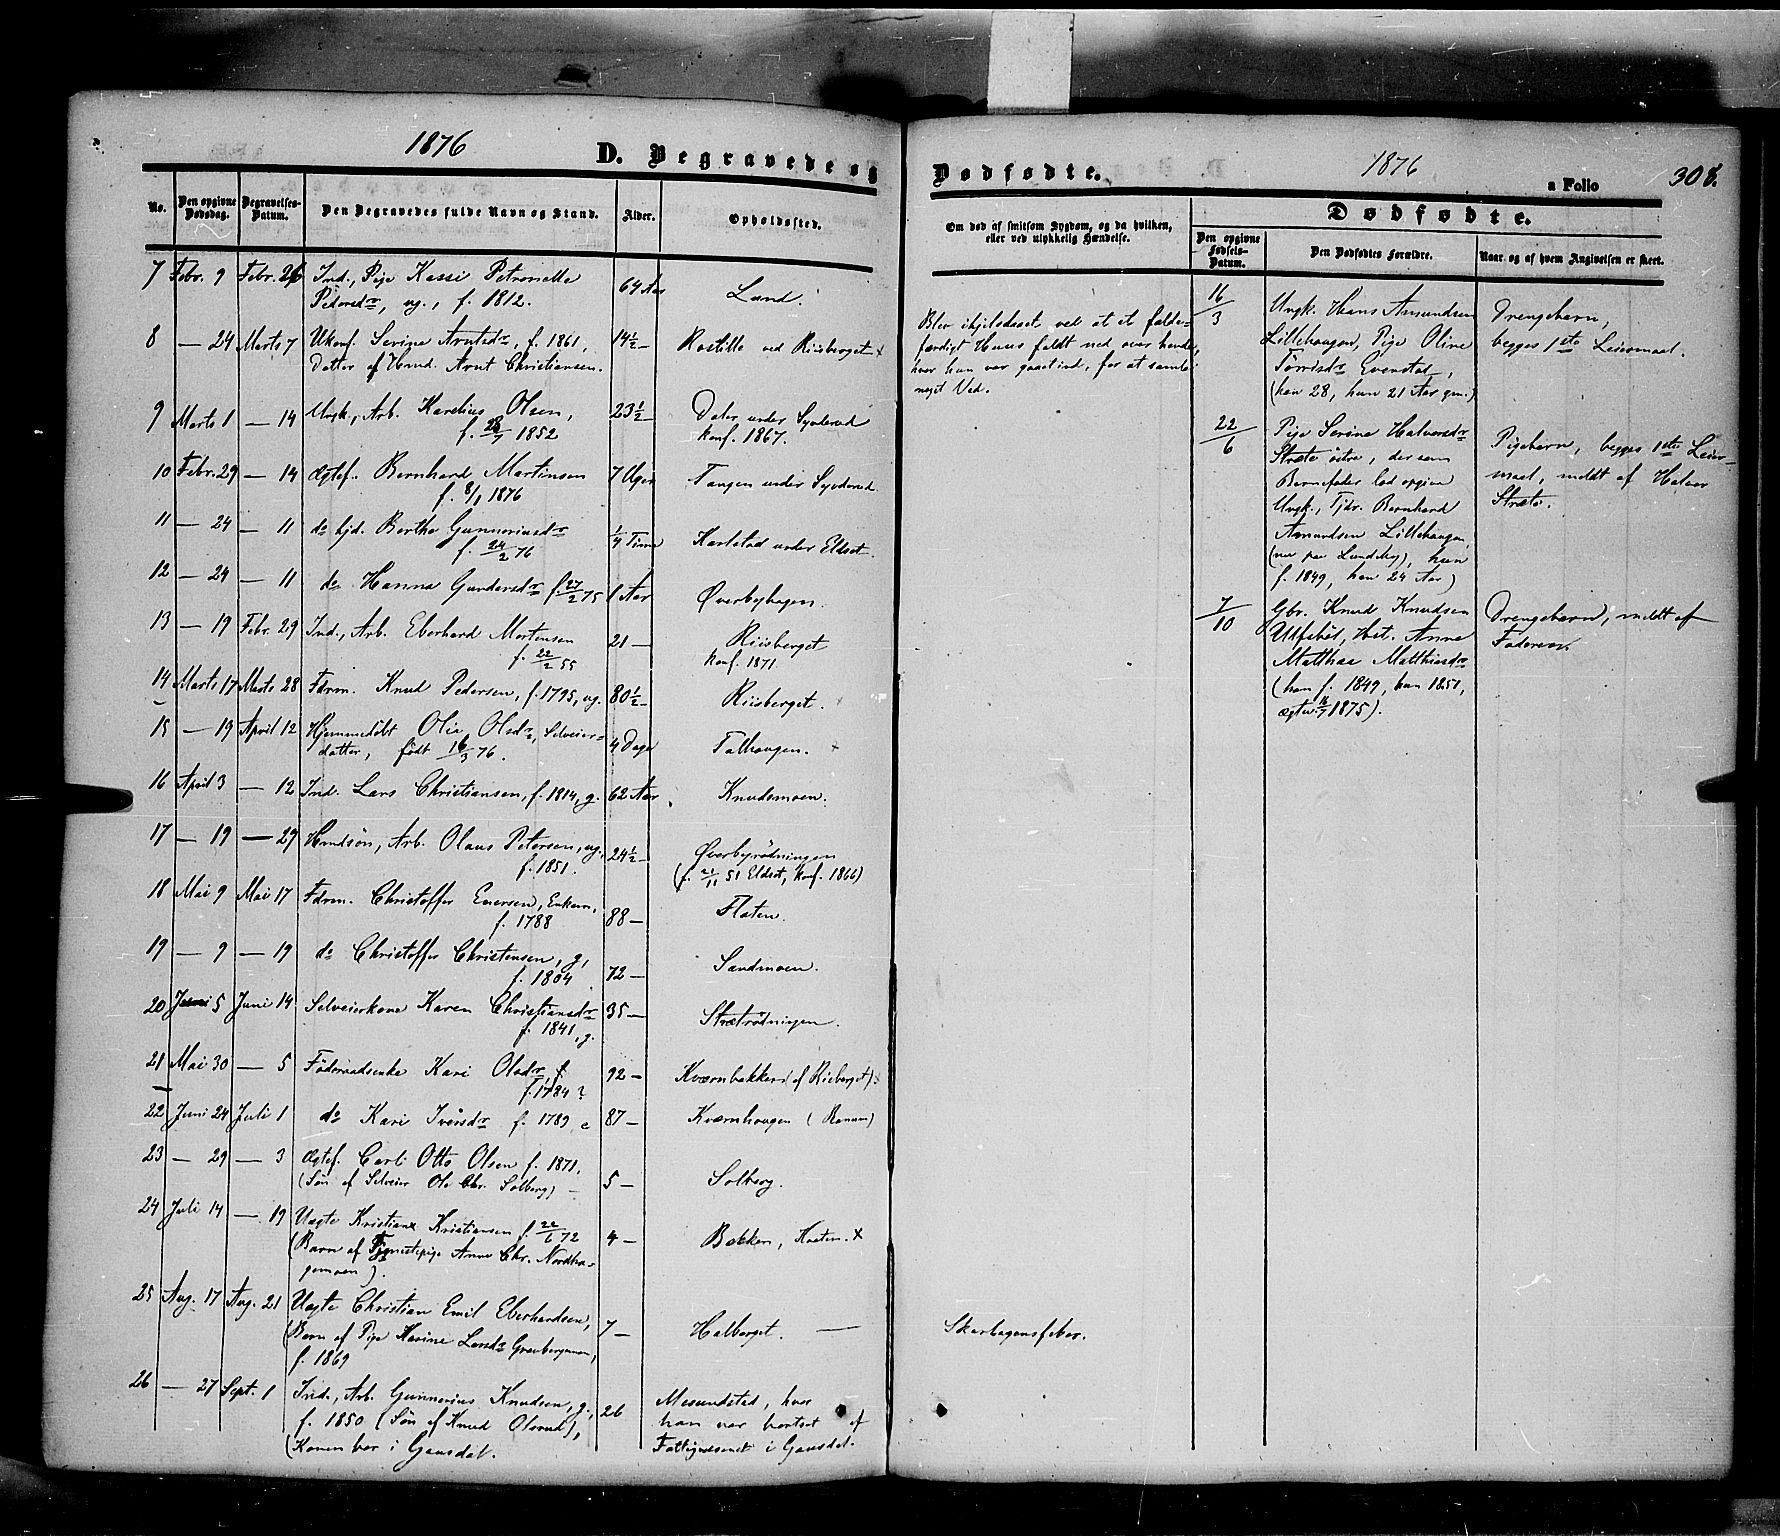 1876
D. Begravede og
No.
Den opgivne Dødsdag.
Begravelses-Datum.
Den Begravedes fulde Navn og Stand.
Alder.
Opholdssted.
7 Febr. 9 Febr. 26 Ind., Pige Kassi Petronelle 64 Aar Lund.
Pedersdr, ug., f. 1812.
8 — 24 Marts 7 Ukonf. Serine Arntsdr, f. 1861, 14½ — ved Riisberget
Datter af Hmd. Arnt Christiansen.
9 Marts 1 — 14 Ungk., Arb. Karelius Olsen, 23½ — under
f. 1852 konf. 1867.
10 Febr. 29 — 14 Ægtef. Bernhard Martinsen 7 Uger Tangen under
f. 8/1 1876
11 — 24 — 11 do hjd. Berthe Gunneriusdr ¼ Time Karlstad under Eldset
f. 24/2 76
12 — 24 — 11 do Hanna Gundersdr f. 27/2 75 1 Aar Øverbyhagen.
13 — 19 Febr. 29 Ind., Arb. Eberhard Mortensen 21 — Riisberget
f. 22/2 55 konf. 1871
14 Marts 17 Marts 28 Fdrm. Knud Pedersen, f. 1795, ug. 80½ — Riisberget.
15 — 19 April 12 Hjemmedøbt Olia Olsdr, Selveier-
datter, født 16/3 76. 4 Dage
16 April 3 — 12 Ind. Lars Christiansen, f. 1814, g. 62 Aar Knudsmoen.
17 — 19 — 29 Hmdsøn, Arb. Olaus Petersen, ug., 24½ — Øverbyrødningen
f. 1851. (f. 21/11 51 Eldset, konf. 1866)
18 Mai 9 Mai 17 Fdrm. Christoffer Enersen, Enkem., 88 — Flaten.
f. 1788
19 — 9 — 19 do Christoffer Christensen, g., 72 — Sandmoen.
f. 1804
20 Juni 5 Juni 14 Selveierkone Karen Christiansdr 35 — Strætrødningen.
f. 1841, g.
21 Mai 30 — 5 Føderaadsenke Kari Olsdr 92 — Kværnbakken (af Risberget)
f. 1784?
22 Juni 24 Juli 1 do Kari Iversdr f. 1789, e 87 — Kværnhaugen (Ranum)
23 — 29 — 3 Ægtef. Carl Otto Olsen f. 1871, 5 — Solberg.
(Søn af Selveier Ole Chr. Solberg) —
24 Juli 14 — 19 Uægte Kristian Kristiansen f. 22/6 72 4 — Bakken, x
(Barn af Tjenestepige Anne Chr. Nordha-
gemoen).
25 Aug. 17 Aug. 21 Uægte Christian Emil Eberhardsen, 7 — Halberget. —
(Barn af Pige Karine Larsdr Grønbergmoen,
f. 1869
26 — 27 Sept. 1 Ind., Arb. Gunnerius Knudsen, g., 26 Mesundstad, hvor
f. 1850 (Søn af Knud Olsrud), han var bortsat af
(Konen bor i Gausdal. Fattigvæsenet i Gausdal.
Dødfødte.
1876
a Folio 308.
Om død af smitsom Sygdom, og da hvilken, eller ved ulykkelig Hændelse.
Dødfødte.
Den opgivne Fødsels-Datum.
Den Dødfødtes Forældre.
Naar og af hvem Angivelsen er skeet.
Blev ihjelslaaet ved at et falde-
færdigt Huus faldt ned over hende,
hvor hun var gaaet ind, for at samle
noget Ved.
Skarlagensfeber.
16/3 Ungk. Hans Amundsen
Lillehaugen, Pige Oline
Torrisdr Evenstad,
(han 28, hun 21 Aar gm.)
Drengebarn,
begges 1ste Leiermaal.
22/6 Pige Serine Halvorsdr
Stræte østre, der som
Barnefader lod opgive
Ungk., Tjdr. Bernhard
Amundsen Lillehaugen,
(nu paa Lundeby), han
f. 1849, hun 24 Aar)
Pigebarn, begges 1ste Leier-
maal, meldt af Halvor
Stræte.
7/10 Gbr. Knud Knudsen
Hst. Anne
Mathea Matthiasdr
(han f. 1849, hun 1851,
ægtev. 1875).
Drengebarn, meldt af
Faderen.